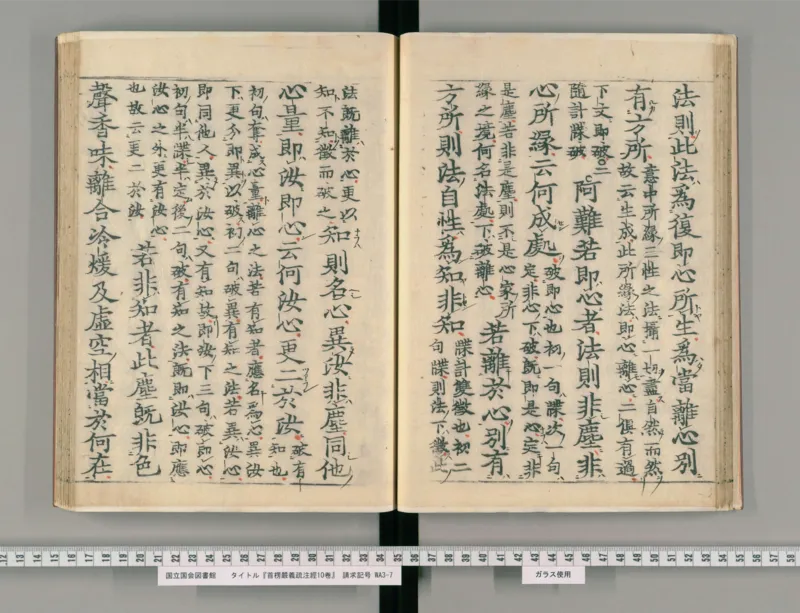 法則此法爲復即心所生爲當離心別
有方所
意中所緣三性之法攝一切盡自然而然
故云生成此所緣法即心離心二俱有過
下文即破○二
隨計牒破
阿難若即心者法則非塵非
心所緣云何成處
破即心也初一句牒次一句
定非心下破既即是心定非
是塵若非是塵則不是心家所
緣之境何名法處下破離心
若離於心別有
方所則法自性爲知非知
牒計雙徵也初二
句牒則法下徵此
法既離於心更以
知不知徵而破之
知則名心異汝非塵同他
心量即汝即心云何汝心更二於汝
破有
知也
初句奪成心量離心之法若有知者應名爲心異汝
下更分即異以破初二句破異有知之法若異汝心
即同他人異於汝心又有知故即汝下三句破即心
初句半牒半定後二句破有知之法既即汝心即應
汝心之外更有汝心
也故云更二於汝
若非知者此塵既非色
聲香味離合冷煖及虛空相當於何在
12 13 14 15 16 17 18 19 20 21 22 23 24 25 26 27 28 29 30 31 32 33 34 35 36 37 38 39 40 41 42 43 44 45 46 47 48 49 50 51 52 53 54 55 56 57 58 59
国立国会図書館 タイトル『首楞嚴義疏注經10巻』 請求記号 WA3-7
ガラス使用